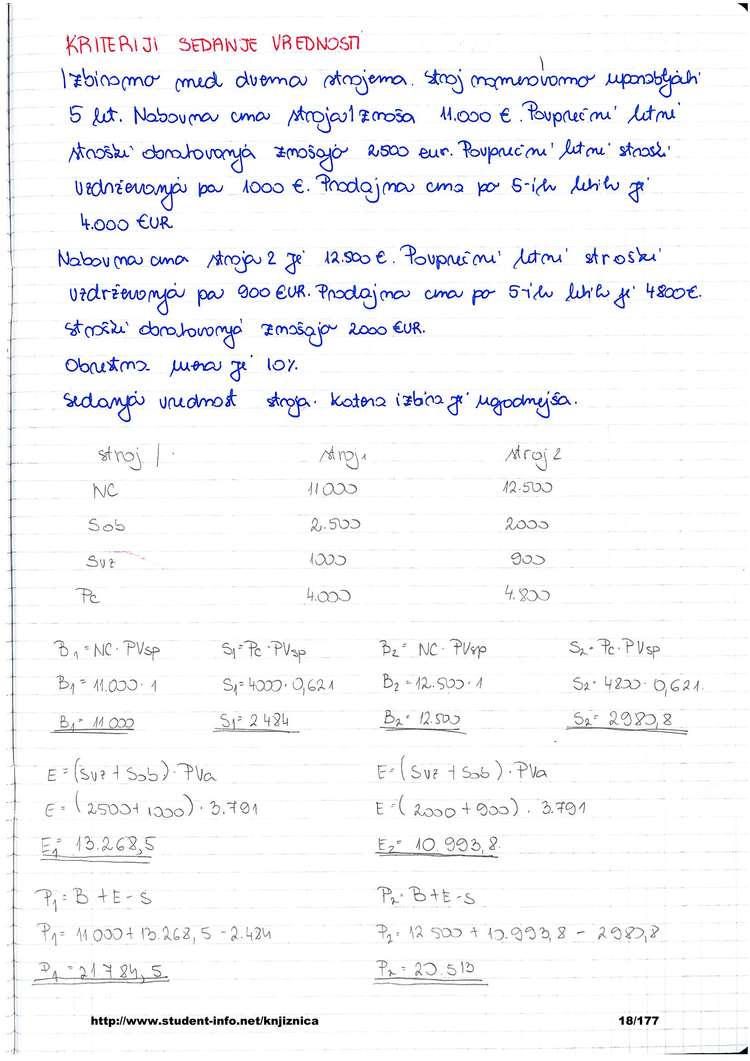 KRITERIJI SEDANJE VREDNOSTI
Izbiramo med dvema strojema. Stroj nameravamo uporabljati
5 let. Nabavna cena stroja 1 znaša 11.000 €. Povprečni letni
stroški obratovanja znašajo 2500 eur. Povprečni letni stroški
vzdrževanja pa 1000 €. Prodajna cena po 5-ih letih je
4.000 €UR
Nabavna cena stroja 2 je 12.500 €. Povprečni letni stroški
vzdrževanja pa 900 €UR. Prodajna cena po 5-ih letih je 4800€.
Stroški obratovanja znašajo 2000 €UR.
Obrestna mera je 10%.
Sedanja vrednost stroja. Katera izbira je ugodnejša.
stroj / . stroj 1 stroj 2
NC 11000 12.500
Sob 2.500 2000
Svz 1000 900
Pc 4.000 4.800
B1 = NC · PVsp S1 = Pc · PVsp B2 = NC · PVsp S2 = Pc · PVsp
B1 = 11.000 · 1 S1 = 4000 · 0,621 B2 = 12.500 · 1 S2 = 4800 · 0,621.
B1 = 11 000 S1 = 2 484 B2 = 12.500 S2 = 2980,8
E = (Svz + Sob) · PVa E = (Svz + Sob) · PVa
E = (2500 + 1000) · 3.791 E = (2000 + 900) . 3.791
E1 = 13.268,5 E2 = 10.993,8.
P1 = B + E - S P2 = B + E - S
P1 = 11000 + 13.268,5 - 2.484 P2 = 12 500 + 10.993,8 - 2980,8
P1 = 21 784,5 P2 = 20.513
http://www.student-info.net/knjiznica 18/177